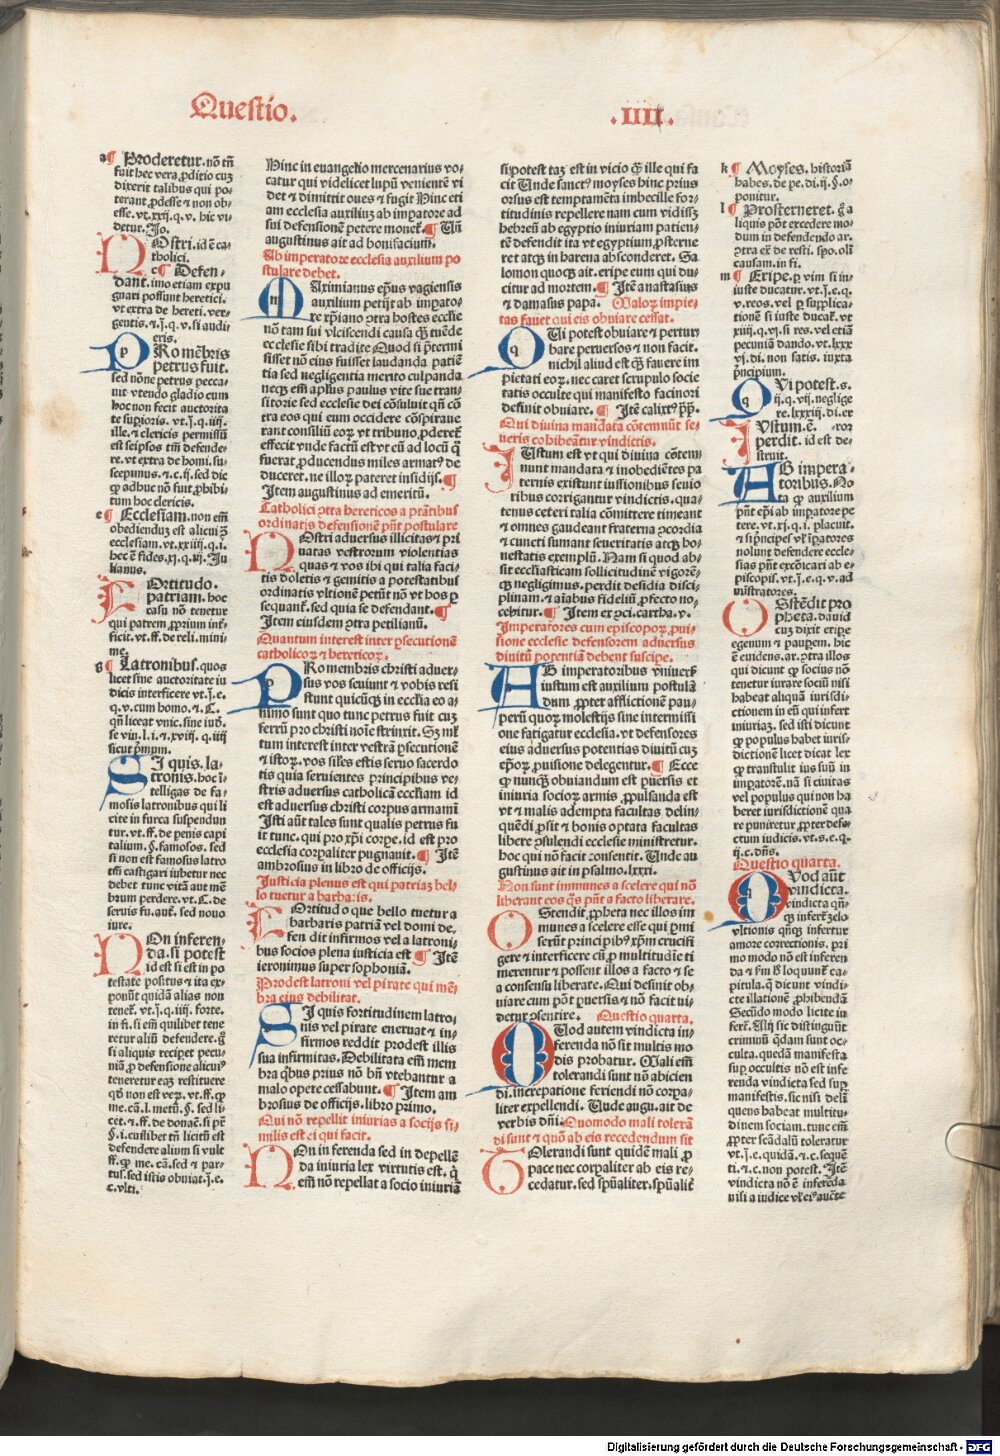 Questio.
.IIII.
a ¶ Proderetur. nō tn̄
fuit hec vera ꝓditio cuꝫ
dixerit talibus qui po⸗
terant ꝓdesse ⁊ non ob⸗
esse. vt. xxij. q. v. hic vi⸗
detur. Jo.
NOstri. id ē ca⸗
tholici.
c ¶ Defen⸗
dant. imo etiam expu
gnari possunt heretici.
vt extra de hereti. ver⸗
gentis. ⁊. j. q. v. si audi
eris.
PRo mēbris
petrus fuit.
sed nōne petrus pecca⸗
uit vtendo gladio cum
hoc non fecit auctorita
te suꝑioris. vt. j. q. iiij.
ille. ⁊ clericis permissū
est seipsos tm̄ defende⸗
re. vt extra de homi. su⸗
scepimus. ⁊. c. ij. sed die
ꝙ adhuc nō sunt ꝓhibi⸗
tum hoc clericis.
e ¶ Ecclesiam. non em̄
obediendus est alicui ꝯ̄
ecclesiam. vt. xxiiij. q. i.
hec ē fides. xj. q. iij. Ju
lianus.
FOrtitudo.
patriam. hoc
casu nō tenetur
qui patrem ꝓprium int̄⸗
ficit. vt. ff. de reli. mini
me.
g ¶ Latronibus. quos
licet sine auctoritate iu
dicis interficere vt. j. e.
q. v. cum homo. ⁊. C.
qn̄ liceat vnic. sine iud̄.
se vin. l. i. ⁊. xviij. q. iij
sicut ṗmum.
SI quis. la⸗
tronis. hoc ī⸗
telligas de fa⸗
mosis latronibus qui li
cite in furca suspendun
tur. vt. ff. de penis capi
talium. §. famosos. sed
si non est famosus latro
tm̄ castigari iubetur nec
debet tunc vitā aut mē
brum perdere. vt. C. de
seruis fu. aut̄. sed nouo
iure.
NOn inferen⸗
da. si potest
id est si est in po
testate positus ⁊ ita ex⸗
ponūt quidā alias non
tenet̄. vt. j. q. iij. forte.
in fi. si em̄ quilibet tene
retur aliū defendere. ḡ
si aliquis recipet pecu⸗
niā ꝓ defensione alicui⁹
teneretur eaꝫ restituere
qd̄ non est verꝫ. vt. ff. ꝙ
me. cā. l. metū. §. sed li⸗
cet. ⁊. ff. de donat̄. si pn̄
§. i. cuilibet tn̄ licitū est
defendere alium si vult
ff. ꝙ me. cā. sed ⁊ par⸗
tus. sed istis obuiat. j. e.
c. vlti.
Hinc in euangelio mercenarius vo⸗
catur qui videlicet lupū venientē vi
det ⁊ dimittit oues ⁊ fugit Hinc eti
am ecclesia auxiliuꝫ ab imꝑatore ad
sui defensionē petere monet̄. ¶ Un̄
augustinus ait ad bonifacium.
Ab imperatore ecclesia auxilium po
stulare debet.
MAximianus ep̄us vagiensis
auxilium petijt ab imꝑato⸗
re xp̄iano ꝯtra hostes eccl̄ie
nō tam sui vlciscendi causa ꝙ̄ tuēde
ecclesie sibi tradite Quod si p̄termi
sisset nō eius fuisset laudanda patiē
tia sed negligentia merito culpanda
necꝫ em̄ apl̄us paulus vite sue tran⸗
sitorie sed ecclesie dei cōsuluit qn̄ cō
tra eos qui eum occidere cōspiraue
rant consiliū eoꝝ vt tribuno ꝓderet̄
effecit vnde factū est vt eū ad locū q̄
fuerat ꝓducendus miles armat⁹ de
duceret. ne illoꝝ pateret insidijs. ¶
Item augustinus ad emeritū.
Catholici ꝯtra hereticos a ptātibus
ordinatis defensionē pn̄t postulare
NOstri aduersus illicitas ⁊ pri
uatas vestrorum violentias
quas ⁊ vos ibi qui talia faci⸗
tis doletis ⁊ gemitis a potestatibus
ordinatis vltionē petūt nō vt hos ꝑ
sequant̄. sed quia se defendant. ¶
Item eiusdem ꝯtra petilianū.
Quantum interest inter ꝑsecutionē
catholicoꝝ ⁊ hereticoꝝ.
PRo membris christi aduer⸗
sus vos seuiunt ⁊ vobis resi
stunt quicūꝙ in ecclīa eo a⸗
nimo sunt quo tunc petrus fuit cuꝫ
ferrū pro christi noīe strinxit. Sꝫ ml̄
tum interest inter vestrā ꝑsecutionē
⁊ istoꝝ. vos siles estis seruo sacerdo
tis quia seruientes principibus ve⸗
stris aduersus catholicā eccl̄iam id
est aduersus christi corpus armami
Isti aūt tales sunt qualis petrus fu
it tunc. qui pro xp̄i corpe. id est pro
ecclesia corꝑaliter pugnauit. ¶ Itē
ambrosius in libro de officijs.
Justicia plenus est qui patriaꝫ bel⸗
lo tuetur a barbaris.
FOrtitudo que bello tuetur a
barbaris patriā vel domi de⸗
fen dit infirmos vel a latroni⸗
bus socios plena iusticia est ¶ Itē
ieronimus super sophoniā.
Prodest latroni vel pirate qui mē⸗
bra eius debilitat.
SI quis fortitudinem latro⸗
nis vel pirate eneruat ⁊ in⸗
firmos reddit prodest illis
sua infirmitas. Debilitata em̄ mem
bra qͥbus prius nō bn̄ vtebantur a
malo opere cessabunt. ¶ Item am
brosius de officijs. libro primo.
Qui nō repellit iniurias a socijs si⸗
milis est ei qui facit.
NOn in ferenda sed in depellē
da iniuria lex virtutis est. q̇
em̄ nō repellat a socio iniuriā
si potest taꝫ est in vicio ꝙ̄ ille qui fa
cit Unde sanct⁹ moyses hinc prius
orsus est temptamēta imbecille for⸗
titudinis repellere nam cum vidissꝫ
hebreū ab egyptio iniuriam patien⸗
tē defendit ita vt egyptium ꝓsterne
ret atꝙ in harena absconderet. Sa
lomon quoꝙ ait. eripe eum qui du⸗
citur ad mortem. ¶ Itē anastasius
⁊ damasus papa. Maloꝝ impie⸗
tas fauet qui eis obuiare cessat.
QUi potest obuiare ⁊ pertur
bare peruersos ⁊ non facit.
nichil aliud est ꝙ̄ fauere im
pietati eoꝝ. nec caret scrupulo socie
tatis occulte qui manifesto facinori
definit obuiare. ¶ Itē calixt⁹ pp̄.
Qui diuina mandata cōtemnūt se⸗
ueris cohibeātur vindictis.
IUstum est vt qui diuina cōtem⸗
nunt mandata ⁊ inobediētes pa
ternis existunt iussionibus seuio
ribus corrigantur vindictis. qua⸗
tenus ceteri talia cōmittere timeant
⁊ omnes gaudeant fraterna ꝯcordia
⁊ cuncti sumant seueritatis atꝙ ho⸗
nestatis exemplū. Nam si quod ab⸗
sit eccl̄iasticam sollicitudinē vigorē⸗
ꝙ negligimus. perdit desidia disci⸗
plinam. ⁊ aīabus fideliū ꝓfecto no⸗
cebitur. ¶ Item ex ꝯci. cartha. v.
Imperatores cum episcopoꝝ ꝓui⸗
sione ecclesie defensorem aduersus
diuitū potentiā debent suscipe.
AB imperatoribus vniuers̄
iustum est auxilium postula
dum ꝓpter afflictionē pau⸗
perū quoꝝ molestijs sine intermissi
one fatigatur ecclesia. vt defensores
eius aduersus potentias diuitū cuꝫ
ep̄oꝝ ꝓuisione delegentur. ¶ Ecce
ꝙ nunꝙ̄ obuiandum est ꝑuersis et
iniuria socioꝝ armis ꝓpulsanda est
vt ⁊ malis adempta facultas delin⸗
quēdi ꝓsit ⁊ bonis optata facultas
libere ꝯsulendi ecclesie ministretur.
hoc qui nō facit consentit. Unde au
gustinus ait in psalmo. lxxxi.
Non sunt immunes a scelere qui nō
liberant eos qͦs pn̄t a facto liberare.
OStendit ꝓpheta nec illos im
munes a scelere esse qui ꝑmi
serūt principib⁹ xp̄m crucifi
gere ⁊ interficere cū ꝓ multitudīe ti
merentur ⁊ possent illos a facto ⁊ se
a consensu liberare. Qui desinit ob⸗
uiare cum pōt ꝑuersis ⁊ nō facit vi⸗
detur ꝯsentire. Questio quarta.
QUod autem vindicta in⸗
ferenda nō sit multis mo
dis probatur. Mali em̄
tolerandi sunt nō abicien
di. increpatione feriendi nō corꝑa⸗
liter expellendi. Unde augu. ait de
verbis dn̄i. Quomodo mali tolerā
di sunt ⁊ quō ab eis recedendum sit
TOlerandi sunt quidē mali ꝓ
pace nec corꝑaliter ab eis re⸗
cedatur. sed spūaliter. spūalit̄
k ¶ Moyses. historiā
habes. de pe. di. ij. §. o⸗
ponitur.
l ¶ Prosterneret. ḡ a
liquis pōt excedere mo⸗
dum in defendendo ar.
ꝯtra ex̄ de resti. spo. oli
causam. in fi.
m ¶ Eripe. ꝑ vim si in⸗
iuste ducatur. vt. j. e. q.
v. reos. vel ꝑ supplica⸗
tionē si iuste ducat̄. vt
xiij. q. vi. si res. vel etiā
pecuniā dando. vt. lxxx
vj. di. non satis. iuxta
p̄ncipium.
QUi potest. s.
ij. q. vij. neglige
re. lxxxiij. di. er
IUstum. ē. ror
perdit. id est de⸗
struit.
AB impera⸗
toribus. No⸗
ta ꝙ auxilium
pn̄t ep̄i ab imꝑatore pe
tere. vt. xj. q. i. placuit.
⁊ si p̄ncipes vl̓ īꝑatores
nolunt defendere eccle⸗
sias pn̄t excōicari ab e⸗
piscopis. vt. j. e. q. v. ad
ministratores.
OStēdit pro
pheta. dauid
cuꝫ dixit eripe
egenum ⁊ pauꝑem. hic
ē euidens. ar. ꝯtra illos
qui dicunt ꝙ socius nō
tenetur iurare sociū nisi
habeat aliquā iurisdi⸗
ctionem in eū qui infert
iniuriaꝫ. sed isti dicunt
ꝙ populus habet iuris⸗
dictionē licet dicat lex
ꝙ transtulit ius suū in
imꝑatorē. nā si ciuitas
vel populus qui non ha
beret iurisdictionē qua
re puniretur ꝓpter defe⸗
ctum iudicis. vt. s. e. q.
ij. c. dn̄s.
Questio quarta.
QUod aūt
vindicta.
vindicta qn̄⸗
ꝙ infert̄ zelo
vltionis qn̄ꝙ infertur
amore correctionis. pri
mo modo nō est inferen
da ⁊ ſm ħ loquunt̄ ca⸗
pitula. q̄ dicunt vindi⸗
cte illationē ꝓhibendā
Secūdo modo licite in
fert̄. Alij sic distinguūt
criminū q̄dam sunt oc⸗
culta. quedā manifesta
suꝑ occultis nō est infe
renda vindicta sed suꝑ
manifestis. sic nisi deli̅
quens habeat multitu⸗
dinem sociam. tunc em̄
ꝓpter scādalū toleratur
vt. j. e. quidā. ⁊. c. sequē
ti. ⁊. c. non potest. Itē
vindicta nō ē inferēda
nisi a iudice vl̓ ei⁹ aucte